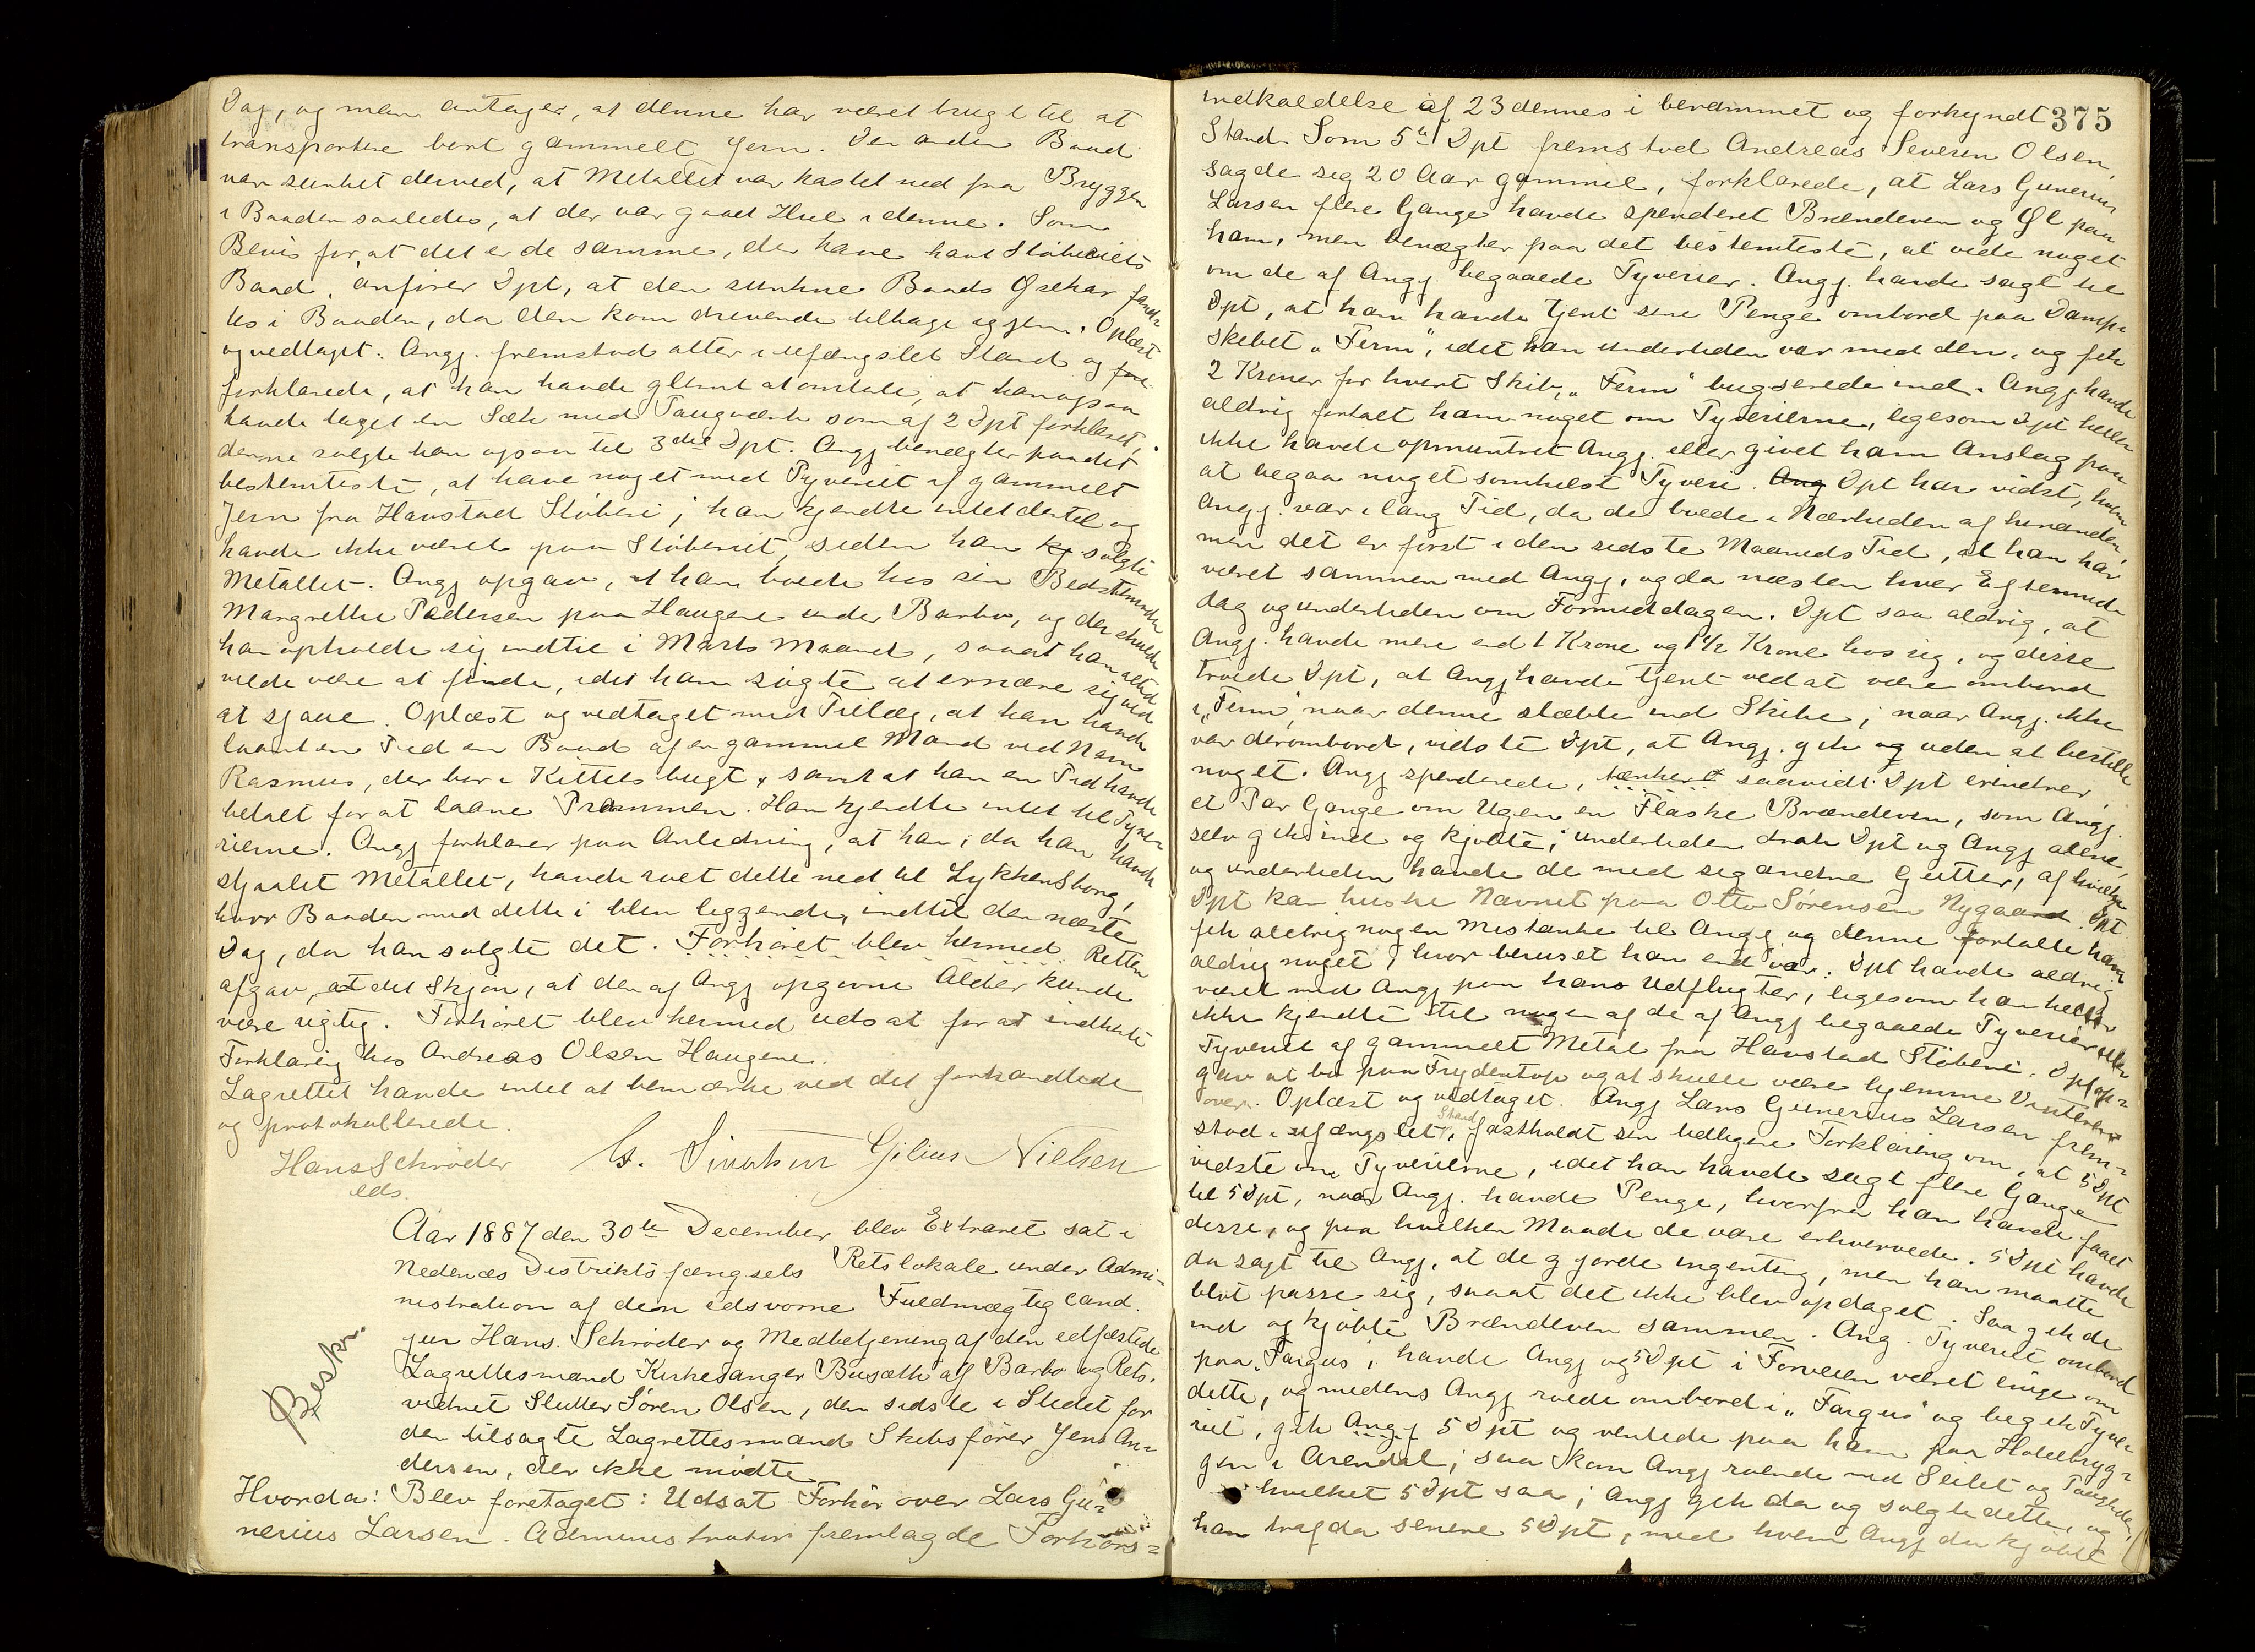 Dag, og man antager, at denne har været brugt til at
transportere bort gammelt Jern. Den anden Baad
var sunket derved, at Metallet var kastet ned fra Bryggen
i Baaden saaledes, at der var gaaet Hul i denne. Som
Bevis for, at det er de samme, der have havt Støberiets
Baad, anfører Dpt, at den sunkne Baads Øsekar fand-
tes i Baaden, da den kom drivende tilbage igjen. Oplæst
og vedtaget. Angj. fremstod atter i ufængslet Stand og for
forklarede, at han havde glemt at omtale, at han ogsaa
havde taget en Sæk med Taugværk som af 2 Dpt forklaret,
denne solgte han ogsaa til 3die Dpt. Angj benægter paa det
bestemteste, at have noget med Tyveriet af gammelt
Jern fra Havstad Støberi; han kjendte intet dertil og
havde ikke været paa Støberiet, siden han kj solgte
Metallet. Angj opgav, at han boede hos sin Bedstemoder
Margrethe Pedersen paa Haugene under Barbo, og der skulde
han opholde sig indtil i Marts Maaned, saaat han altid
vilde være at finde, idet han søgte at ernære sig ved
at sjaue. Oplæst og vedtaget med Tillæg, at han havde
laant en Tid en Baad af en gammel Mand ved Navn
Rasmus, der bor i Kittelsbugt, samt at han en Tid havde
betalt for at laane Prammen. Han kjendte intet til Tyve-
rierne. Angj forklarer paa Anledning, at han, da han havde
stjaalet Metallet, havde roet dette ned til Lykkensborg,
hvor Baaden med dette i blev liggende, indtil den næste
Dag, da han solgte det. Forhøret blev hermed Retten
afgav, at det Skjøn, at den af Angj opgivne Alder kunde
være rigtig. Forhøret blev hermed udsat for at indhente
Forklaring hos Andreas Olsen Haugene.
Lagrettet havde intet at bemærke ved det forhandlede
og protokollerede.
Hans Schrøder Gilius Nielsen
eds.
Aar 1887 den 30te December blev Extraret sat i
Nedenæs Distriktsfængsels Retslokale under Admi-
nistration af den edsvorne Fuldmægtig cand.
jur Hans Schrøder og Medbetjening af den edfæstede
Lagrettesmand Kirkesanger Busæth af Barbo og Rets-
vidnet Slutter Søren Olsen, den sidste i Stedet for
den tilsagte Lagrettesmand Skibsfører Jens An-
dersen, der ikke mødte
Beskr.
Hvorda: Blev foretaget: Udsat Forhør over Lars Gu-
nerius Larsen. Administrator fremlagde Forhørs-
375
indkaldelse af 23 dennes i berammet og forkyndt
Stand. Som 5te Dpt fremstod Andreas Severin Olsen,
sagde sig 20 Aar gammel, forklarede, at Lars Gunerius
Larsen flere Gange havde spenderet Brændeven og Øl paa
ham, men benægter paa det bestemteste, at vide noget
om de af Angj. begaaede Tyverier. Angj. havde sagt til
Dpt, at han havde tjent sine Penge ombord paa Damp-
skibet „Ferm“, idet han undertiden var med den, og fik
2 Kroner for hvert Skib, „Ferm“ bugserede ind. Angj havde
aldrig fortalt ham noget om Tyverierne, ligesom Dpt heller
ikke havde opmuntret Angj. eller givet ham Anslag paa
at begaa noget somhelst Tyveri. Ang Dpt har vidst, hvem
Angj. var i lang Tid, da de boede i Nærheden af hinanden,
men det er først i den sidste Maaneds Tid, at han har
været sammen med Angj, og da næsten hver Eftermid-
dag og undertiden om Formiddagen. Dpt saa aldrig, at
Angj. havde mere end 1 Krone og 1 1/2 Krone hos sig, og disse
troede Dpt, at Angj havde tjent ved at være ombord
i „Ferm“, naar denne slæbte ind Skibe; naar Angj. ikke
var derombord, vidste Dpt, at Angj. gik og uden at bestille
noget. Angj spenderede, saavidt Dpt erindrer,
et Par Gange om Ugen en Flaske Brændeven, som Angj.
selv gik ind og kjøbte; undertiden drak Dpt og Angj alene,
og undertiden havde de med sig andre Gutter, af hvilke
Dpt kan huske Navnet paa Otto Sørensen Nygaard. Dpt
fik aldrig nogen Mistanke til Angj og denne fortalte ham
aldrig noget, hvor beruset han end var. Dpt havde aldrig
været med Angj paa hans Udflugter, ligesom han heller
ikke kjendte til nogen af de af Angj begaaede Tyverier eller
Tyveriet af gammelt Metal fra Havstad Støberi. Dpt op-
gav at bo paa Frydentop og at skulle være hjemme Vinteren
over. Oplæst og vedtaget. Angj Lars Gunerius Larsen frem-
stod i ufængslet Stand, fastholdt sin tidligere Forklaring om, at 5 Dpt
vidste om Tyverierne, idet han havde sagt flere Gange
til 5 Dpt, naar Angj. havde Penge, hvorfra han havde faaet
disse, og paa hvilken Maade de vare erhvervede. 5 Dpt havde
da sagt til Angj, at de gjorde ingenting, men han maatte
blot passe sig, saaat det ikke blev opdaget. Saa gik de
ind og kjøbte Brændeven sammen. Ang. Tyveriet ombord
paa „Fargus“, havde Angj og 5 Dpt i Forveien været enige om
dette, og medens Angj roede ombord i „Fargus“ og begik Tyve-
riet, gik Angj 5 Dpt og ventede paa ham paa Hotelbryg-
gen i Arendal; saa kom Angj roende med Seilet og Tougenden,
hvilket 5 Dpt saa; Angj gik da og solgte dette, og
han traf da senere 5 Dpt, med hvem Angj da kjøbte